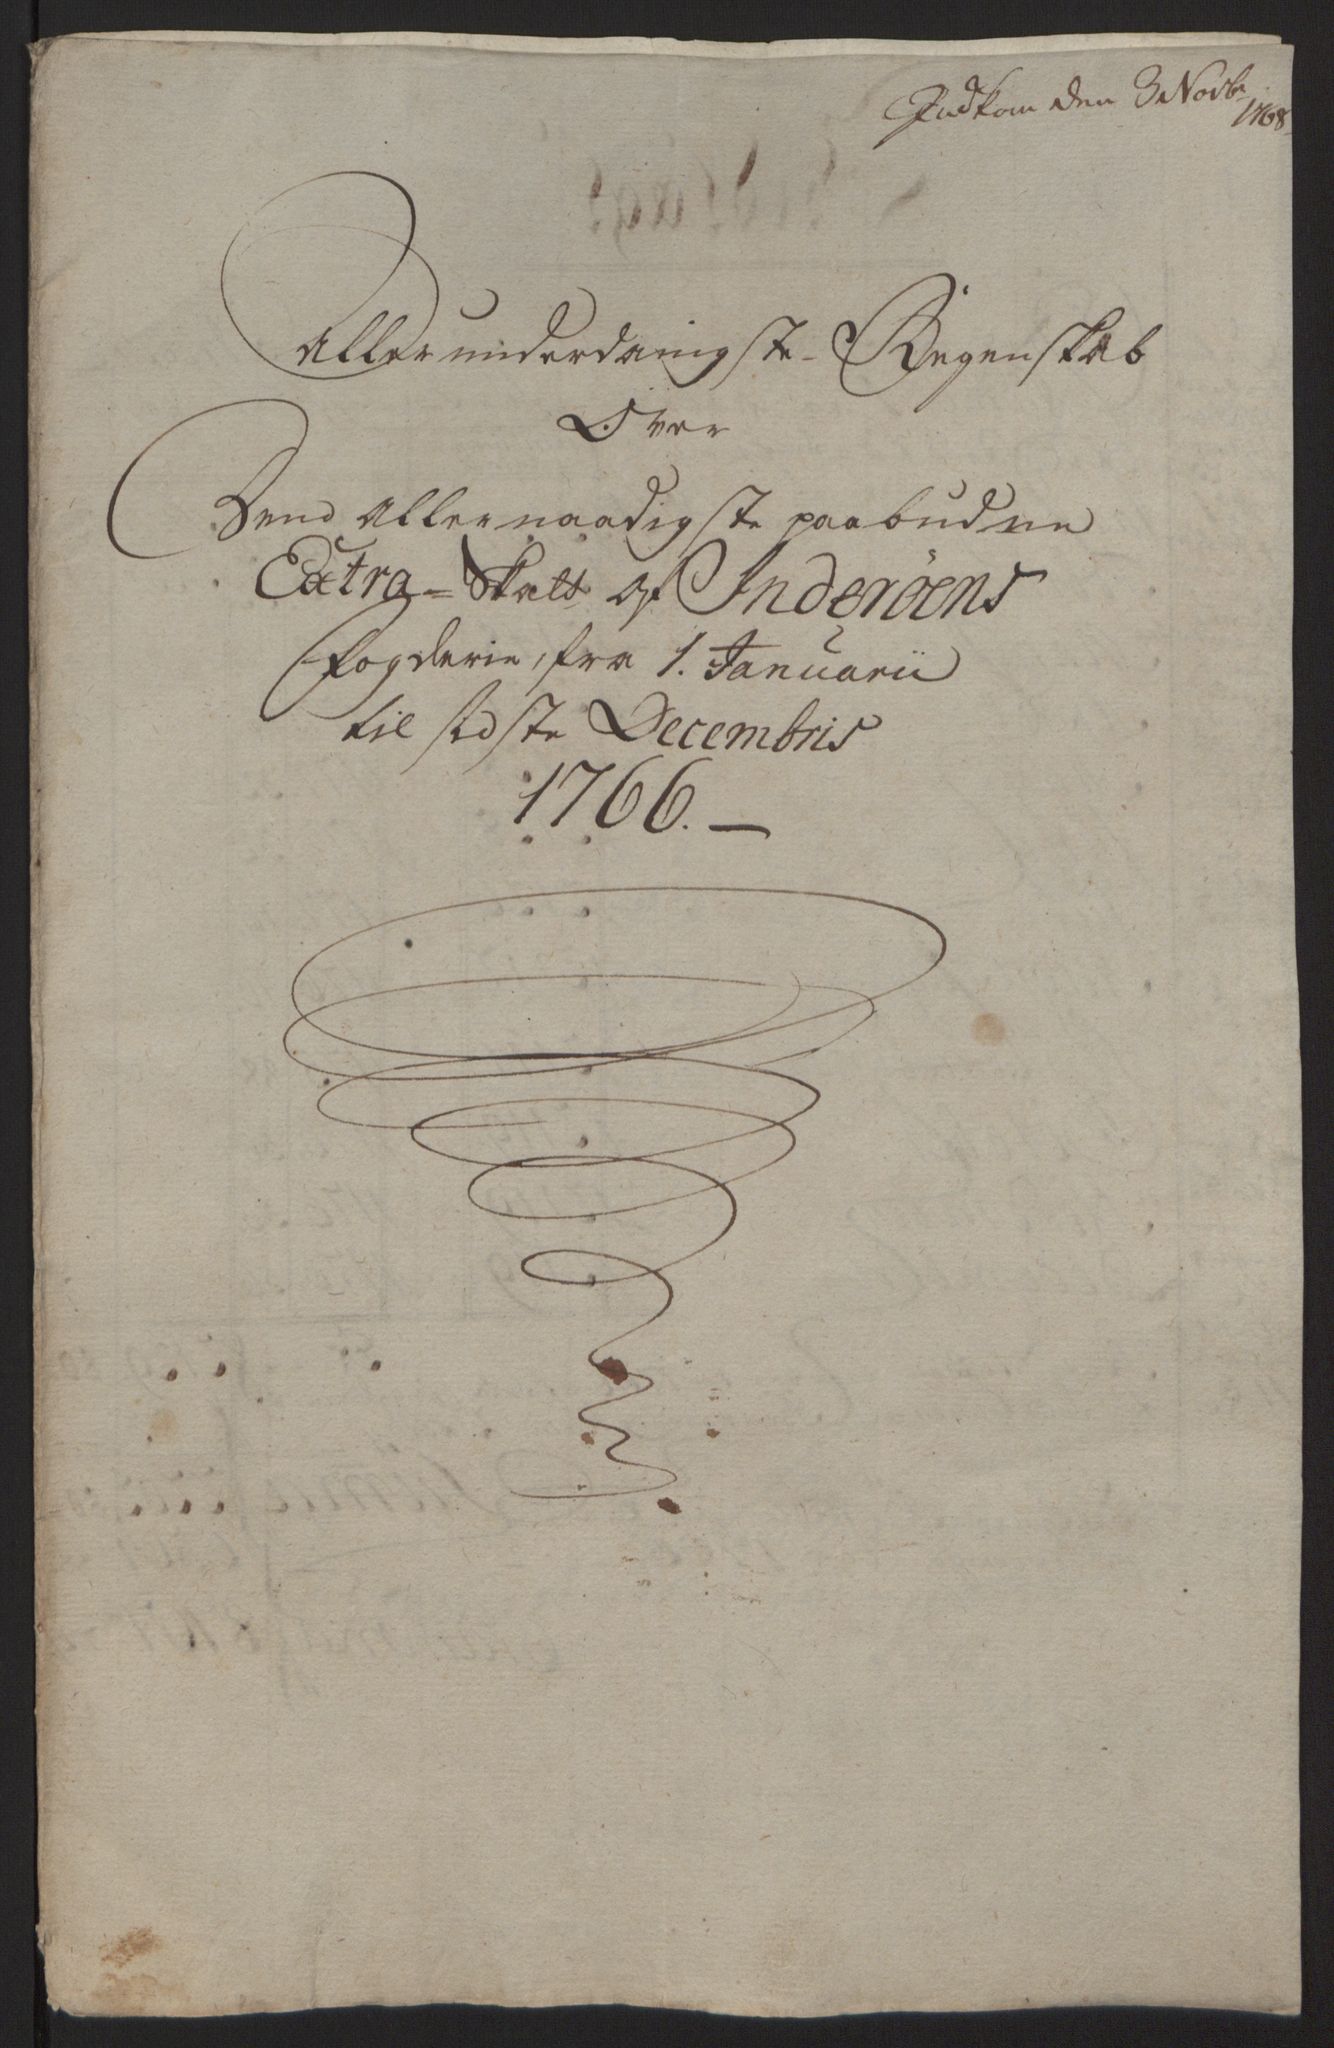 Indkom den 3 Novbr
1768
Allerunderdanigste Regenskab
Over
Dend Allernaadigste paabudne
Extra-Skatt af Inderöens
Fogderie, fra 1. Januarii
til sidste Decembris
1766.